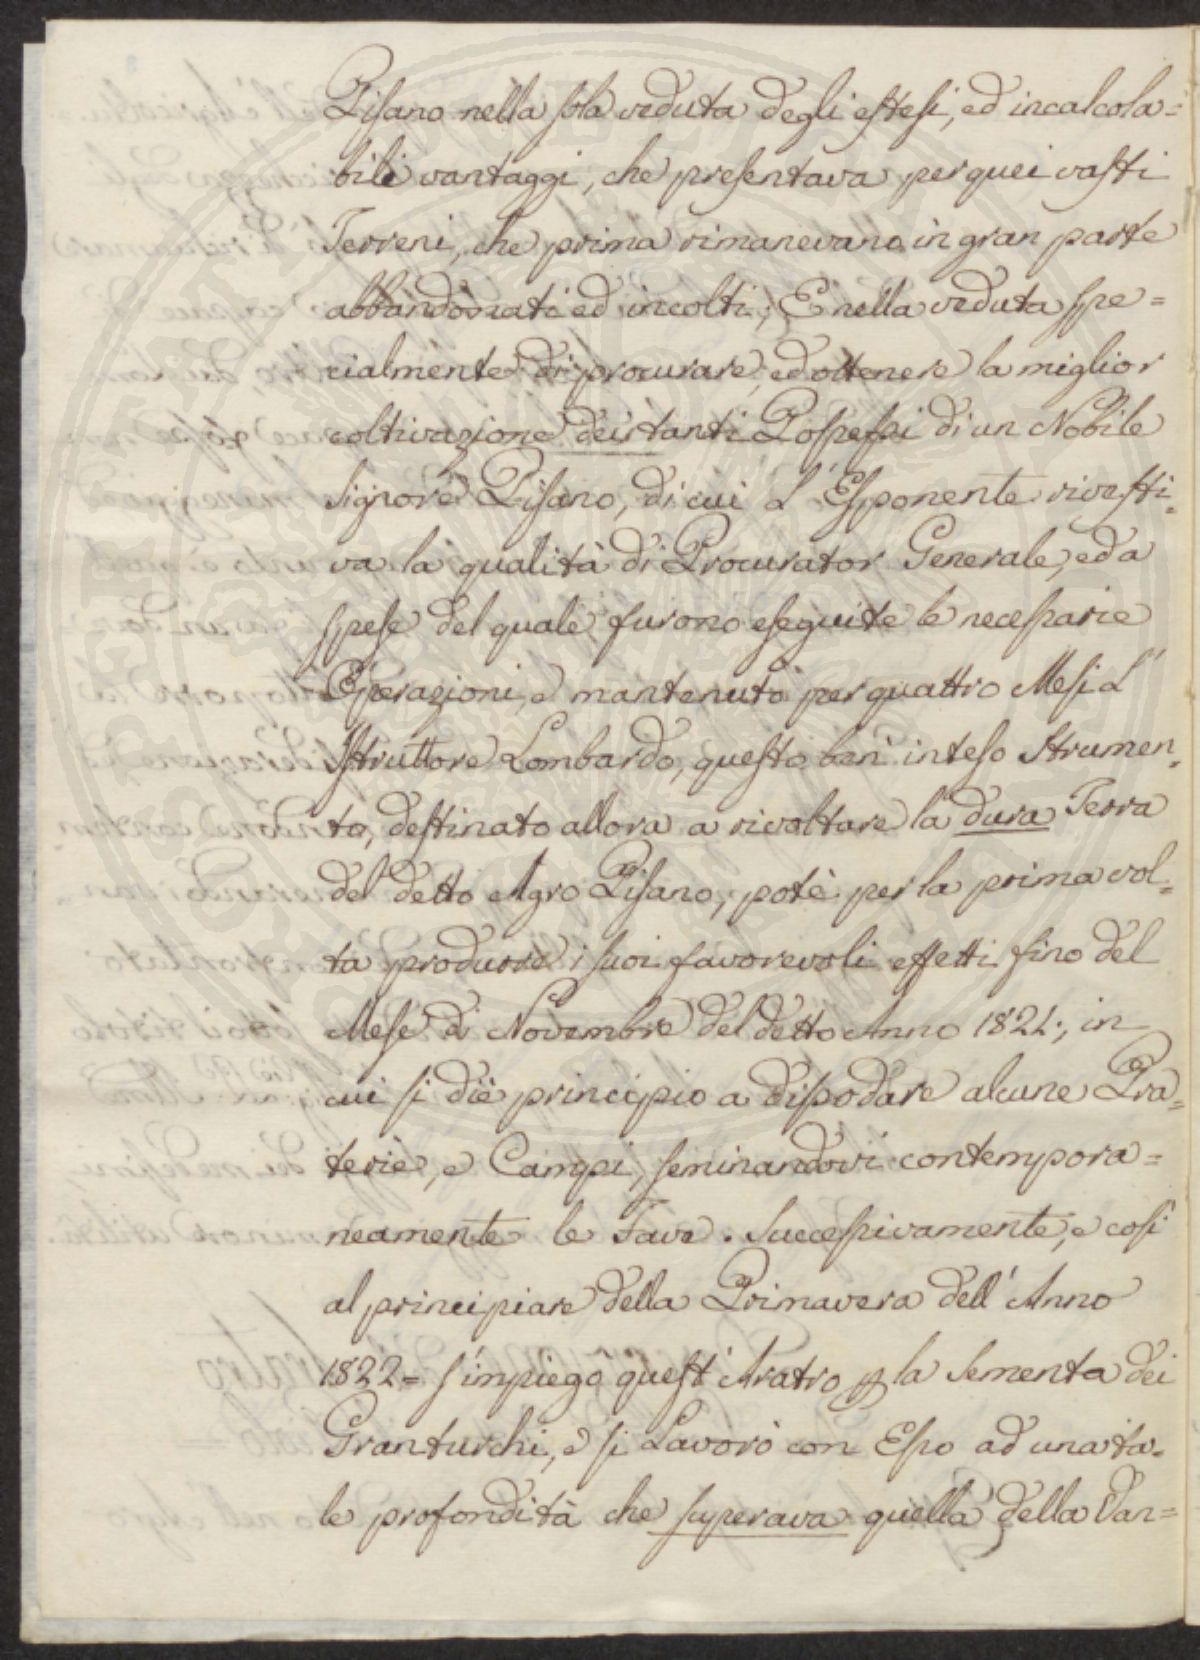 Pisano nella sola veduta degli estesi, ed incalcola=
bili vantaggi, che presentava per quei vasti
Terreni, che prima rimanevano in gran parte
abbandonati ed incolti; E nella veduta spe=
cialmente di procurare, ed ottenere la miglior
coltivazione dei tanti Possessi di un Nobile
Signore Pisano, di cui L'Esponente rivesti=
va la qualità di Procurator Generale, ed a
spese del quale furono eseguite le necessarie
Operazioni, e mantenuto per quattro Mesi L'
Istruttore Lombardo, questo ben inteso Istrumen=
to, destinato allora a rivoltare la dura Terra
del detto Agro Pisano, potè per la prima vol=
ta produrre i suoi favorevoli effetti fino del
Mese di Novembre del detto Anno 1821:, in
cui si diè principio a dissodare alcune Pra=
terie, e Campi, seminandovi contempora=
neamente le Fave. Successivamente, e così
al principiare della Primavera dell'Anno
1822= s'impiegò quest'Aratro p la Sementa dei
Granturchi, e si Lavorò con Esso ad una ta=
le profondità che superava quella della Van=